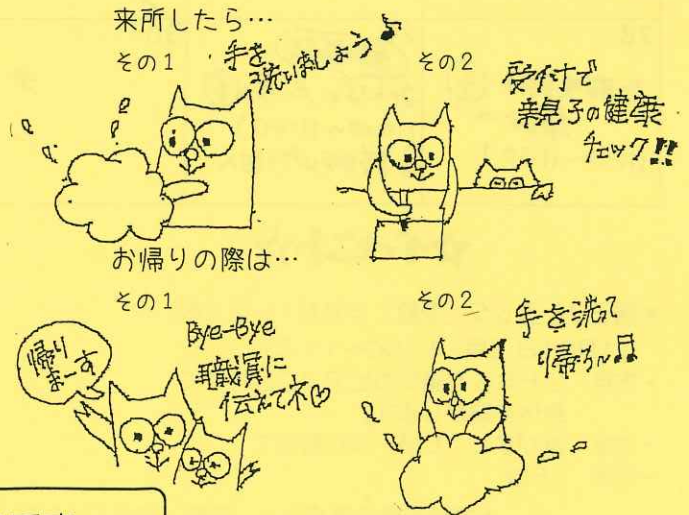 来所したら…
その1
手を
洗いましょう♪
その2
受付で
親子の健康
チェック!!
お帰りの際は…
その1
帰り
まーす
Bye-Bye
職員に
伝えてネ♡
その2
手を洗って
帰ろ~♫